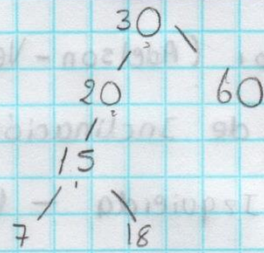 30
20 60
15
7 18